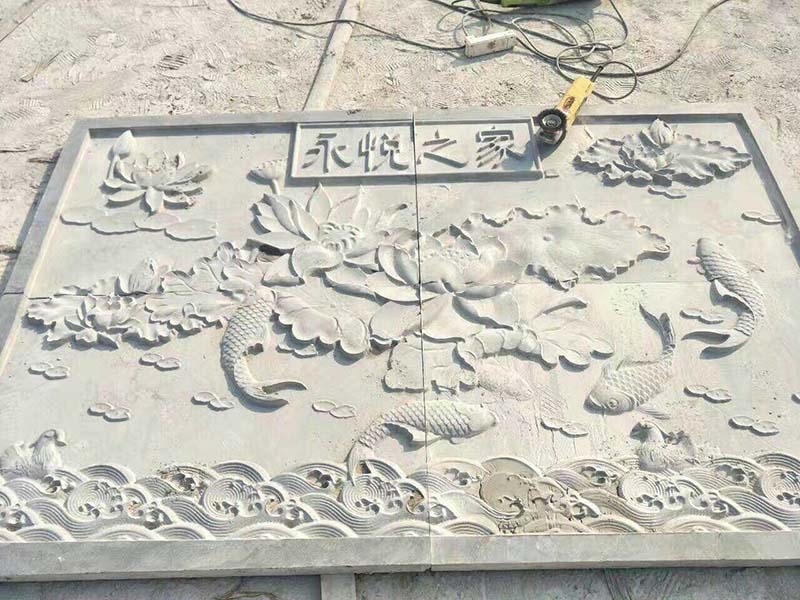 永悦之家